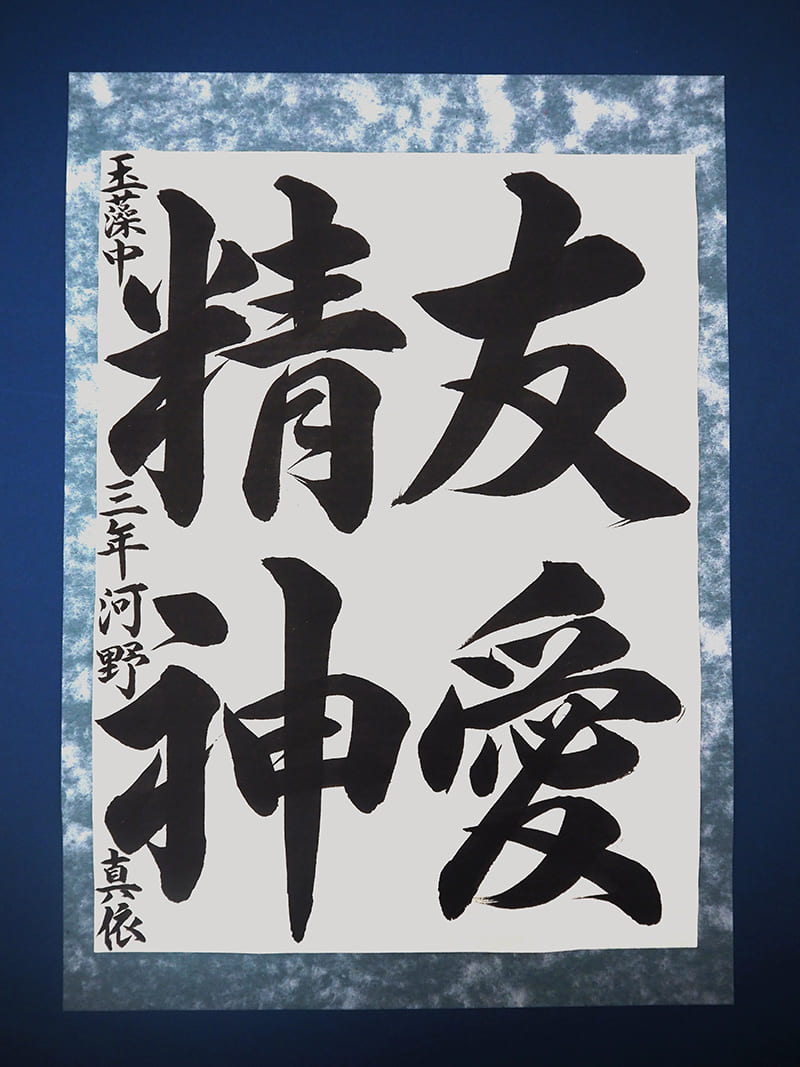 友愛
精神
玉藻中 三年 河野 真依